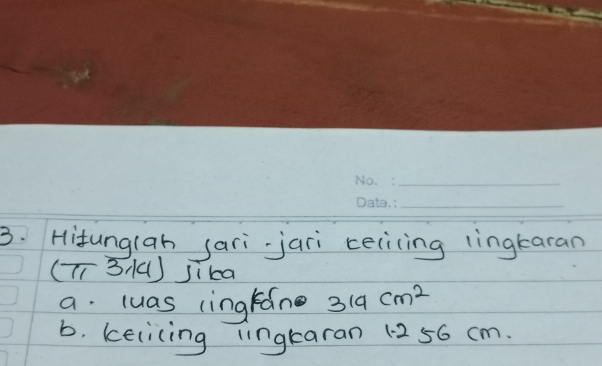 No. :
Date. :
3. Hitunglah jari-jari keliling lingkaran
(π 3,14) jika
a. luas lingkarn 314 cm²
b. keliling lingkaran 1.256 cm.